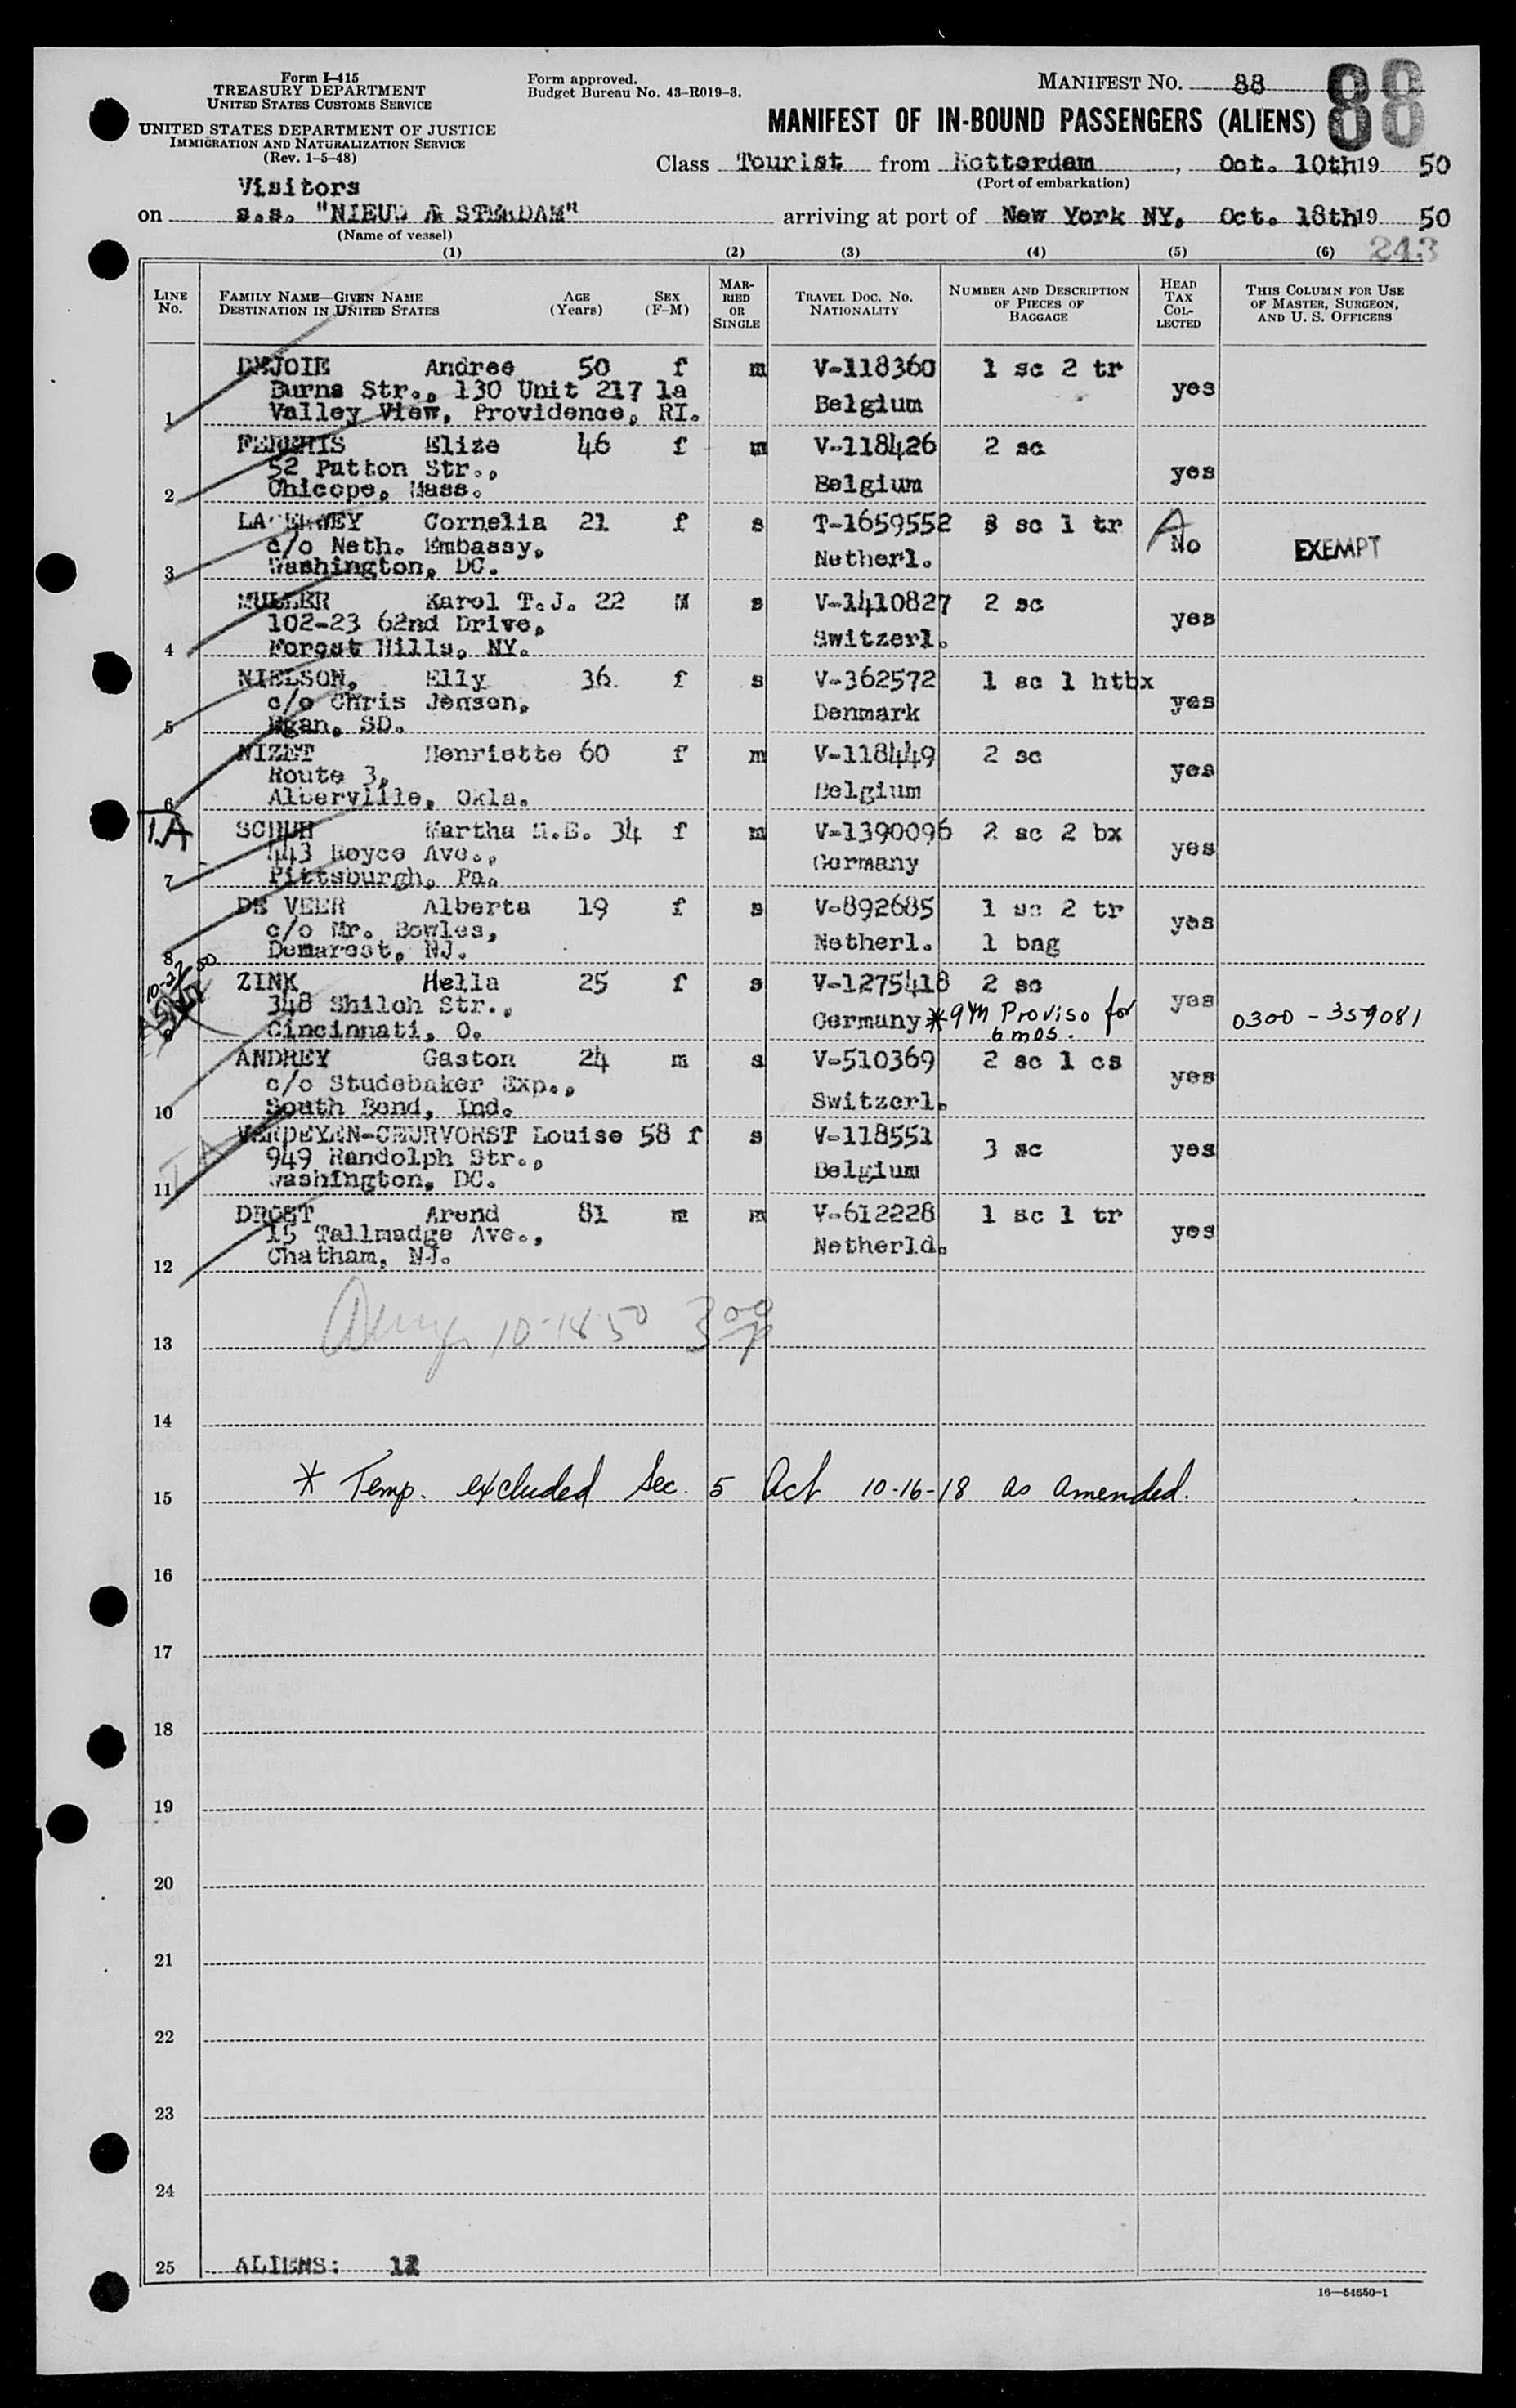 Form I-415
TREASURY DEPARTMENT
UNITED STATES CUSTOMS SERVICE
UNITED STATES DEPARTMENT OF JUSTICE
IMMIGRATION AND NATURALIZATION SERVICE
(Rev. 1-5-48)
Form approved.
Budget Bureau No. 43-R019-3.
MANIFEST NO. 88
88
MANIFEST OF IN-BOUND PASSENGERS (ALIENS)
Class Tourist from Rotterdam, Oct. 10th 19 50
(Port of embarkation)
Visitors
on s.s. "NIEUW A STERDAM" arriving at port of New York NY, Oct. 18th 19 50
(Name of vessel)
243
(1) (2) (3) (4) (5) (6)
LINE NO. FAMILY NAME—GIVEN NAME DESTINATION IN UNITED STATES AGE (Years) SEX (F-M) MARRIED OR SINGLE TRAVEL DOC. NO. NATIONALITY NUMBER AND DESCRIPTION OF PIECES OF BAGGAGE HEAD TAX COLLECTED THIS COLUMN FOR USE OF MASTER, SURGEON, AND U. S. OFFICERS
DEJOIE Andree 50 f m V-118360 1 sc 2 tr
Burns Str., 130 Unit 217 la yes
1 Valley View, Providence, RI. Belgium
Elize 46 f m V-118426 2 sc
52 Patton Str., yes
2 Chicope, Mass. Belgium
LAGERWEY Cornelia 21 f s T-1659552 3 sc 1 tr A
c/o Neth. Embassy, No EXEMPT
3 Washington, DC. Netherl.
MULLER Karel T.J. 22 M s V-1410827 2 sc
102-23 62nd Drive, yes
4 Forest Hills, NY. Switzerl.
NIELSON, Elly 36 f s V-362572 1 sc 1 htbx
c/o Chris Jensen, yes
5 Egan, SD. Denmark
NIZET Henriette 60 f m V-118449 2 sc
Route 3, yes
6 Alberville, Okla. Belgium
I.A SCHUH Martha M.E. 34 f m V-1390096 2 sc 2 bx
443 Royce Ave., yes
7 Pittsburgh, Pa. Germany
DE VEER Alberta 19 f s V-892685 1 sc 2 tr
c/o Mr. Bowles, yes
8 Demarest, NJ. Netherl. 1 bag
10-27-50
ZINK Hella 25 f s V-1275418 2 sc
348 Shiloh Str., yes
9 Cincinnati, O. Germany *9th Proviso for 6 mos. 0300-359081
ANDREY Gaston 24 m s V-510369 2 sc 1 cs
c/o Studebaker Exp., yes
10 South Bend, Ind. Switzerl.
VERDEYEN-CEURVORST Louise 58 f s V-118551
949 Randolph Str., 3 sc yes
IA
11 Washington, DC. Belgium
DROST Arend 81 m m V-612228 1 sc 1 tr
15 Tallmadge Ave., yes
12 Chatham, NJ. Netherld.
13 10-18-50 3 00 p
14
15 * Temp. excluded Sec. 5 Act 10-16-18 as amended.
16
17
18
19
20
21
22
23
24
25 ALIENS: 12
16—54650-1